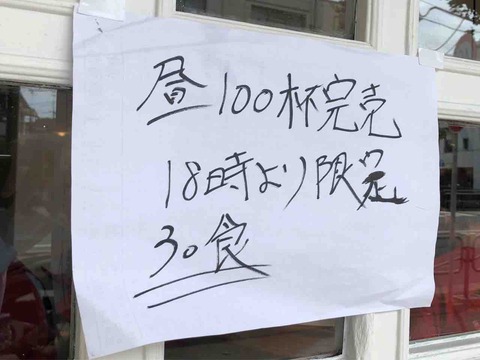 昼100杯完売
18時より限定
30食